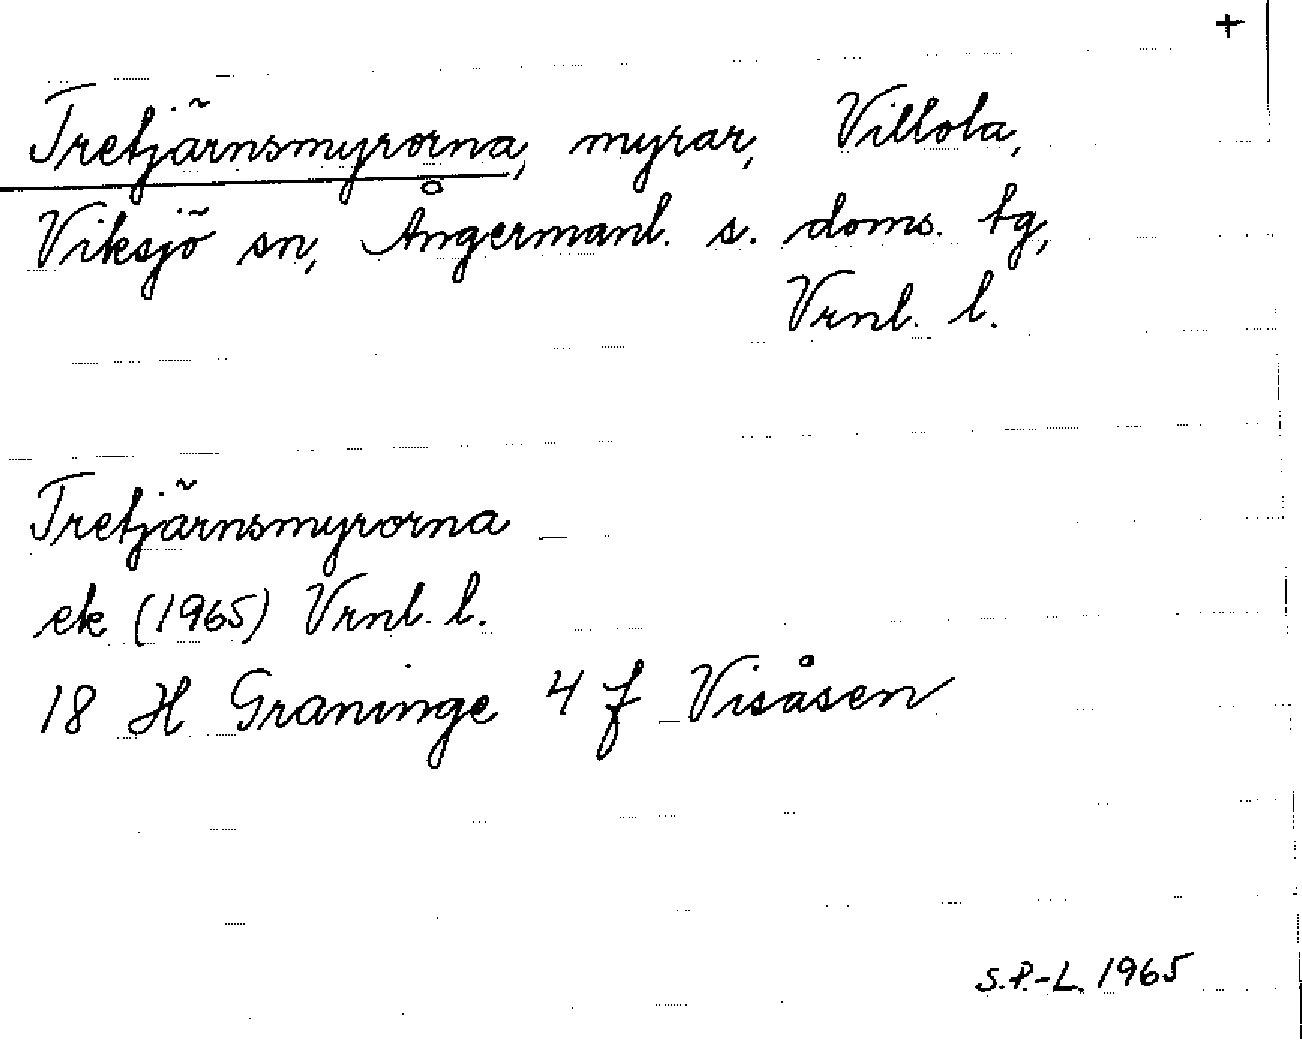 +
Tretjärnsmyrorna, myrar, Villola,
Viksjö sn, Ångermanl. s. doms. tg,
Vrnl. l.
Tretjärnsmyrorna
ek (1965) Vrnl. l.
18 H Graninge 4 f Visåsen
S.P.-L. 1965